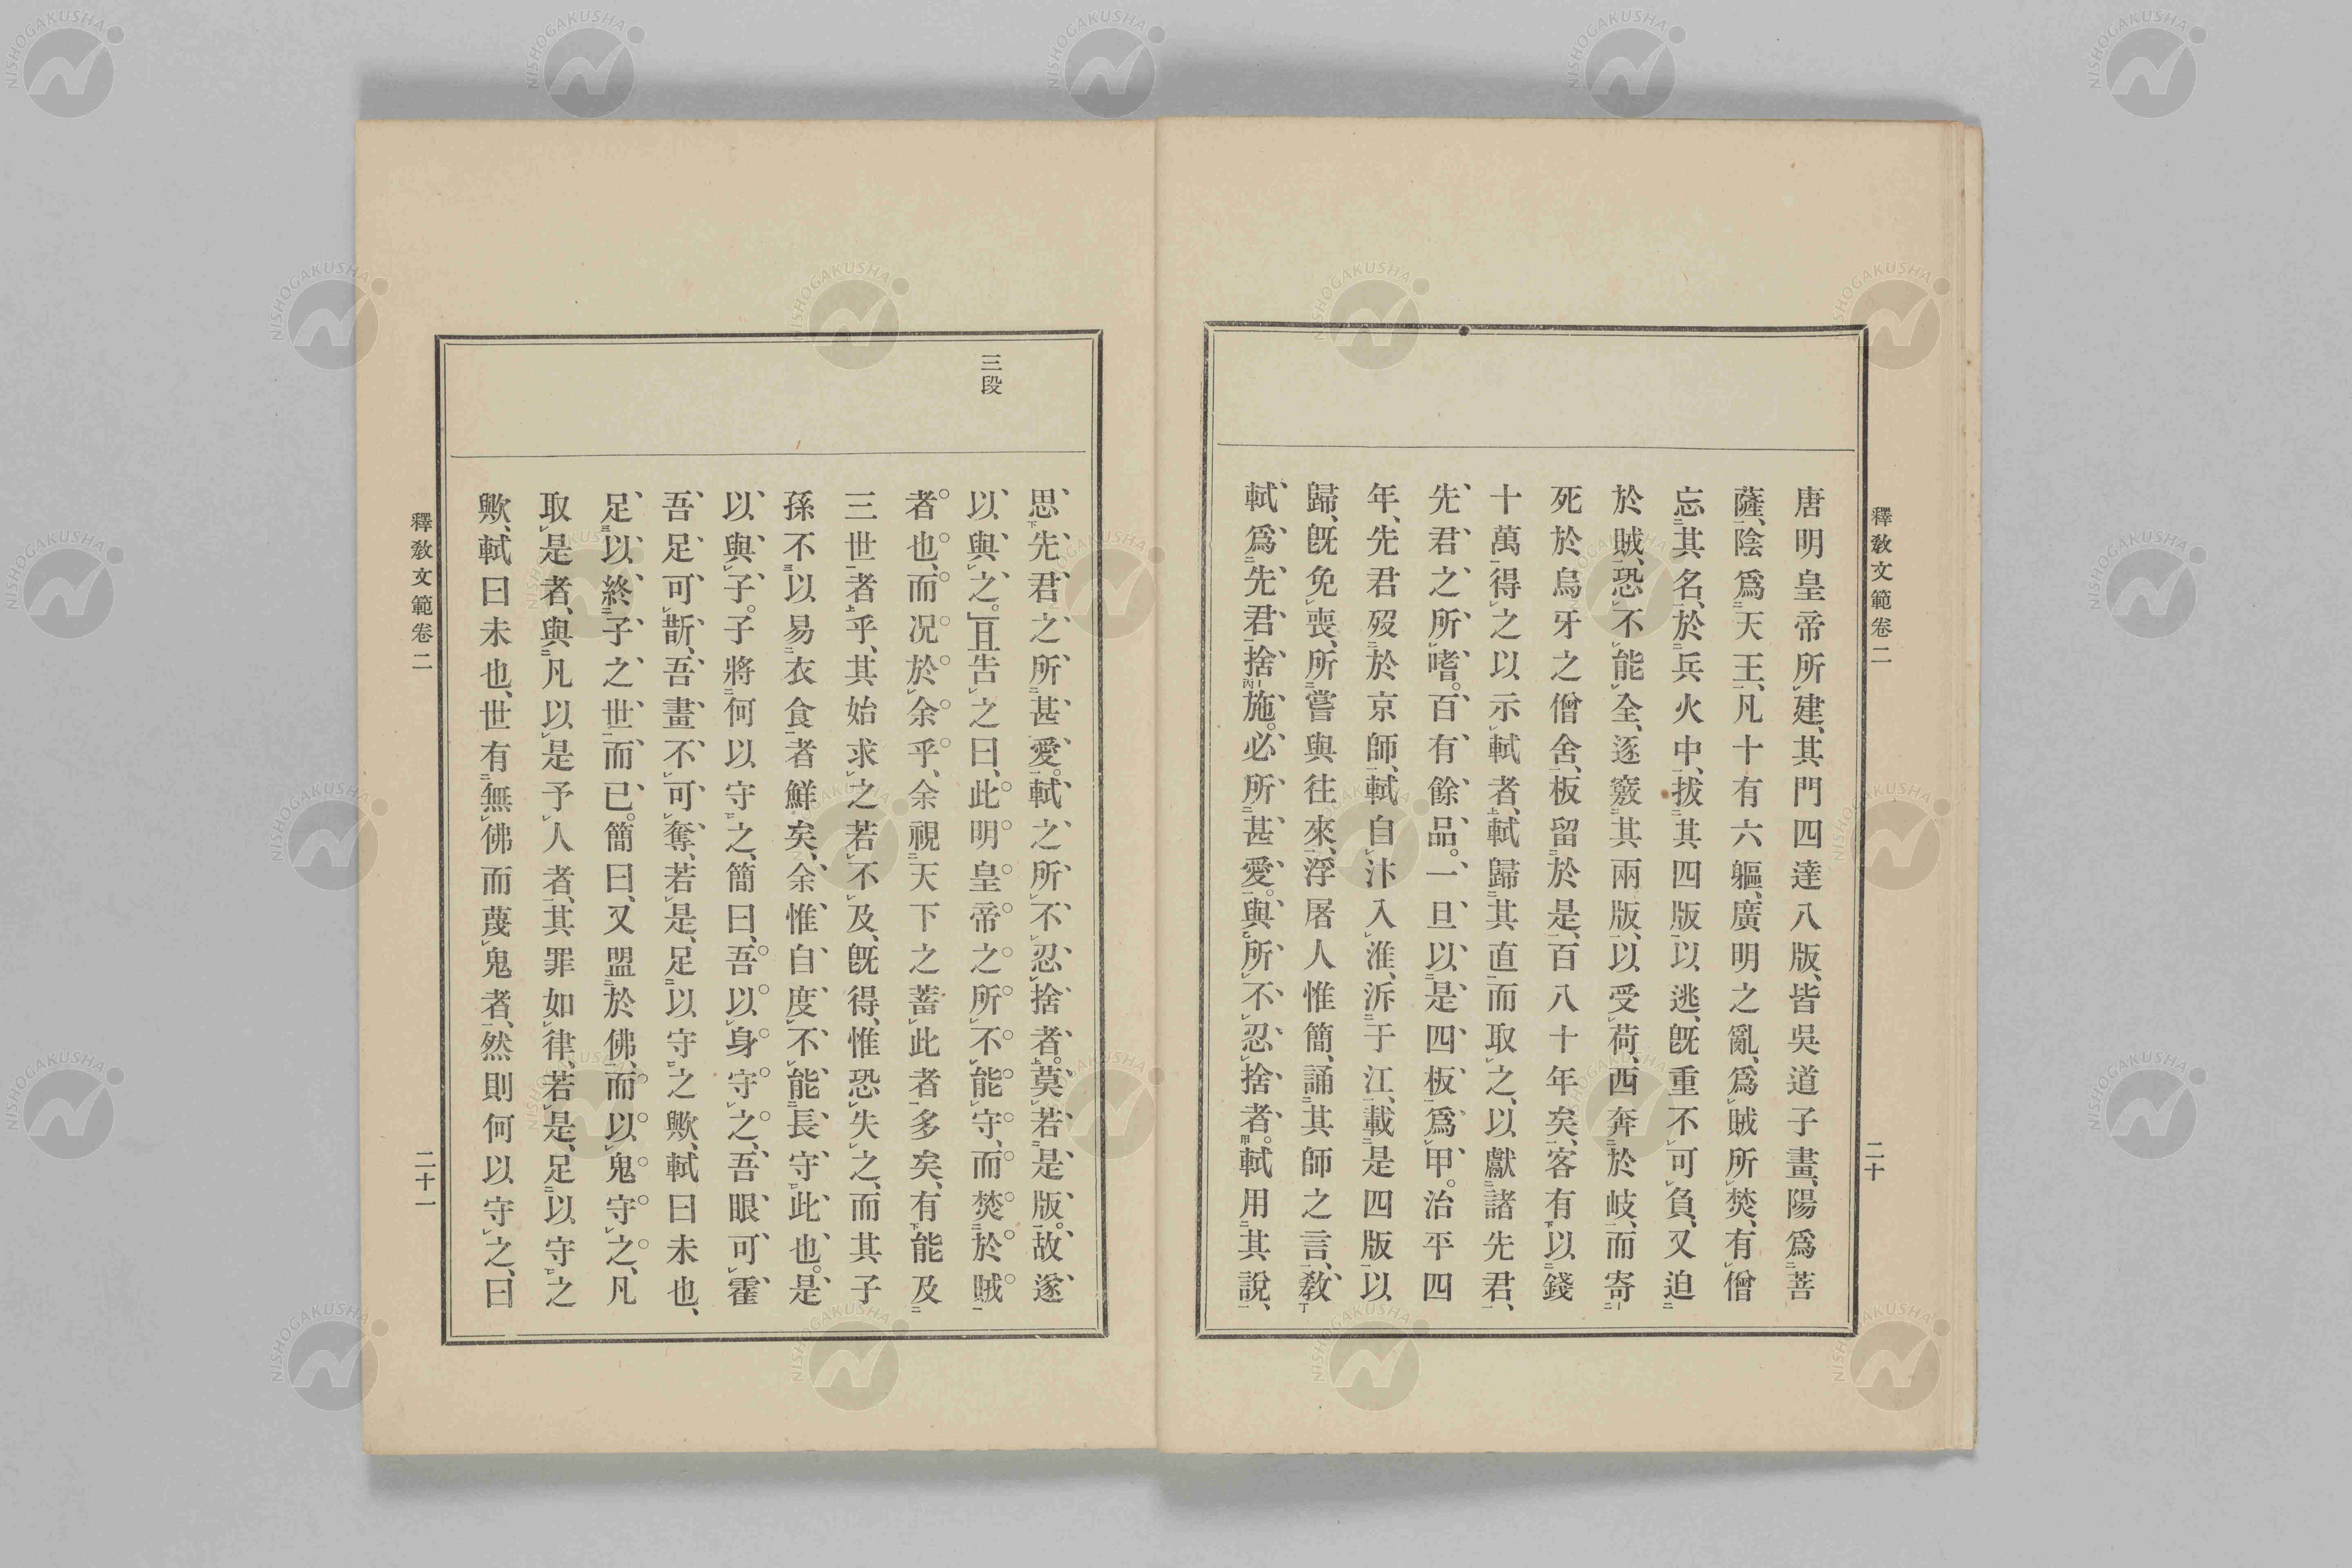 釋教文範卷二
二十
唐明皇帝所建、其門四達八版、皆吳道子畫、陽爲菩
薩、陰爲天王、凡十有六軀、廣明之亂、爲賊所焚、有僧
忘其名、於兵火中、拔其四版以逃、既重不可負、又迫
於賊、恐不能全、逐竅其兩版、以受荷、西奔於岐、而寄
死於烏牙之僧舍、板留於是、百八十年矣、客有以錢
十萬得之以示軾者、軾歸其直而取之、以獻諸先君、
先君之所嗜。百有餘品。一旦以是四板爲甲。治平四
年、先君歿於京師、軾自汴入淮、泝于江、載是四版以
歸、既免喪、所嘗與往來、浮屠人惟簡、誦其師之言、敎
軾爲先君捨施。必所甚愛。與所不忍捨者。軾用其說、
思先君之所甚愛。軾之所不忍捨者。莫若是版。故遂
以與之。」且告之曰、此明皇帝之所不能守、而焚於賊
者也、而況於余乎、余視天下之蓄此者多矣、有能及
三世者乎、其始求之若不及、既得、惟恐失之、而其子
孫不以易衣食者鮮矣、余惟自度不能長守此也。是
以與子。子將何以守之、簡曰、吾以身守之、吾眼可霍
吾足可斮、吾畫不可奪、若是、足以守之歟、軾曰未也、
足以終子之世而已。簡曰、又盟於佛、而以鬼守之、凡
取是者、與凡以是予人者、其罪如律、若是、足以守之
歟、軾曰未也、世有無佛而蔑鬼者、然則何以守之、曰
三段
釋教文範卷二
二十一
NISHOGAKUSHA